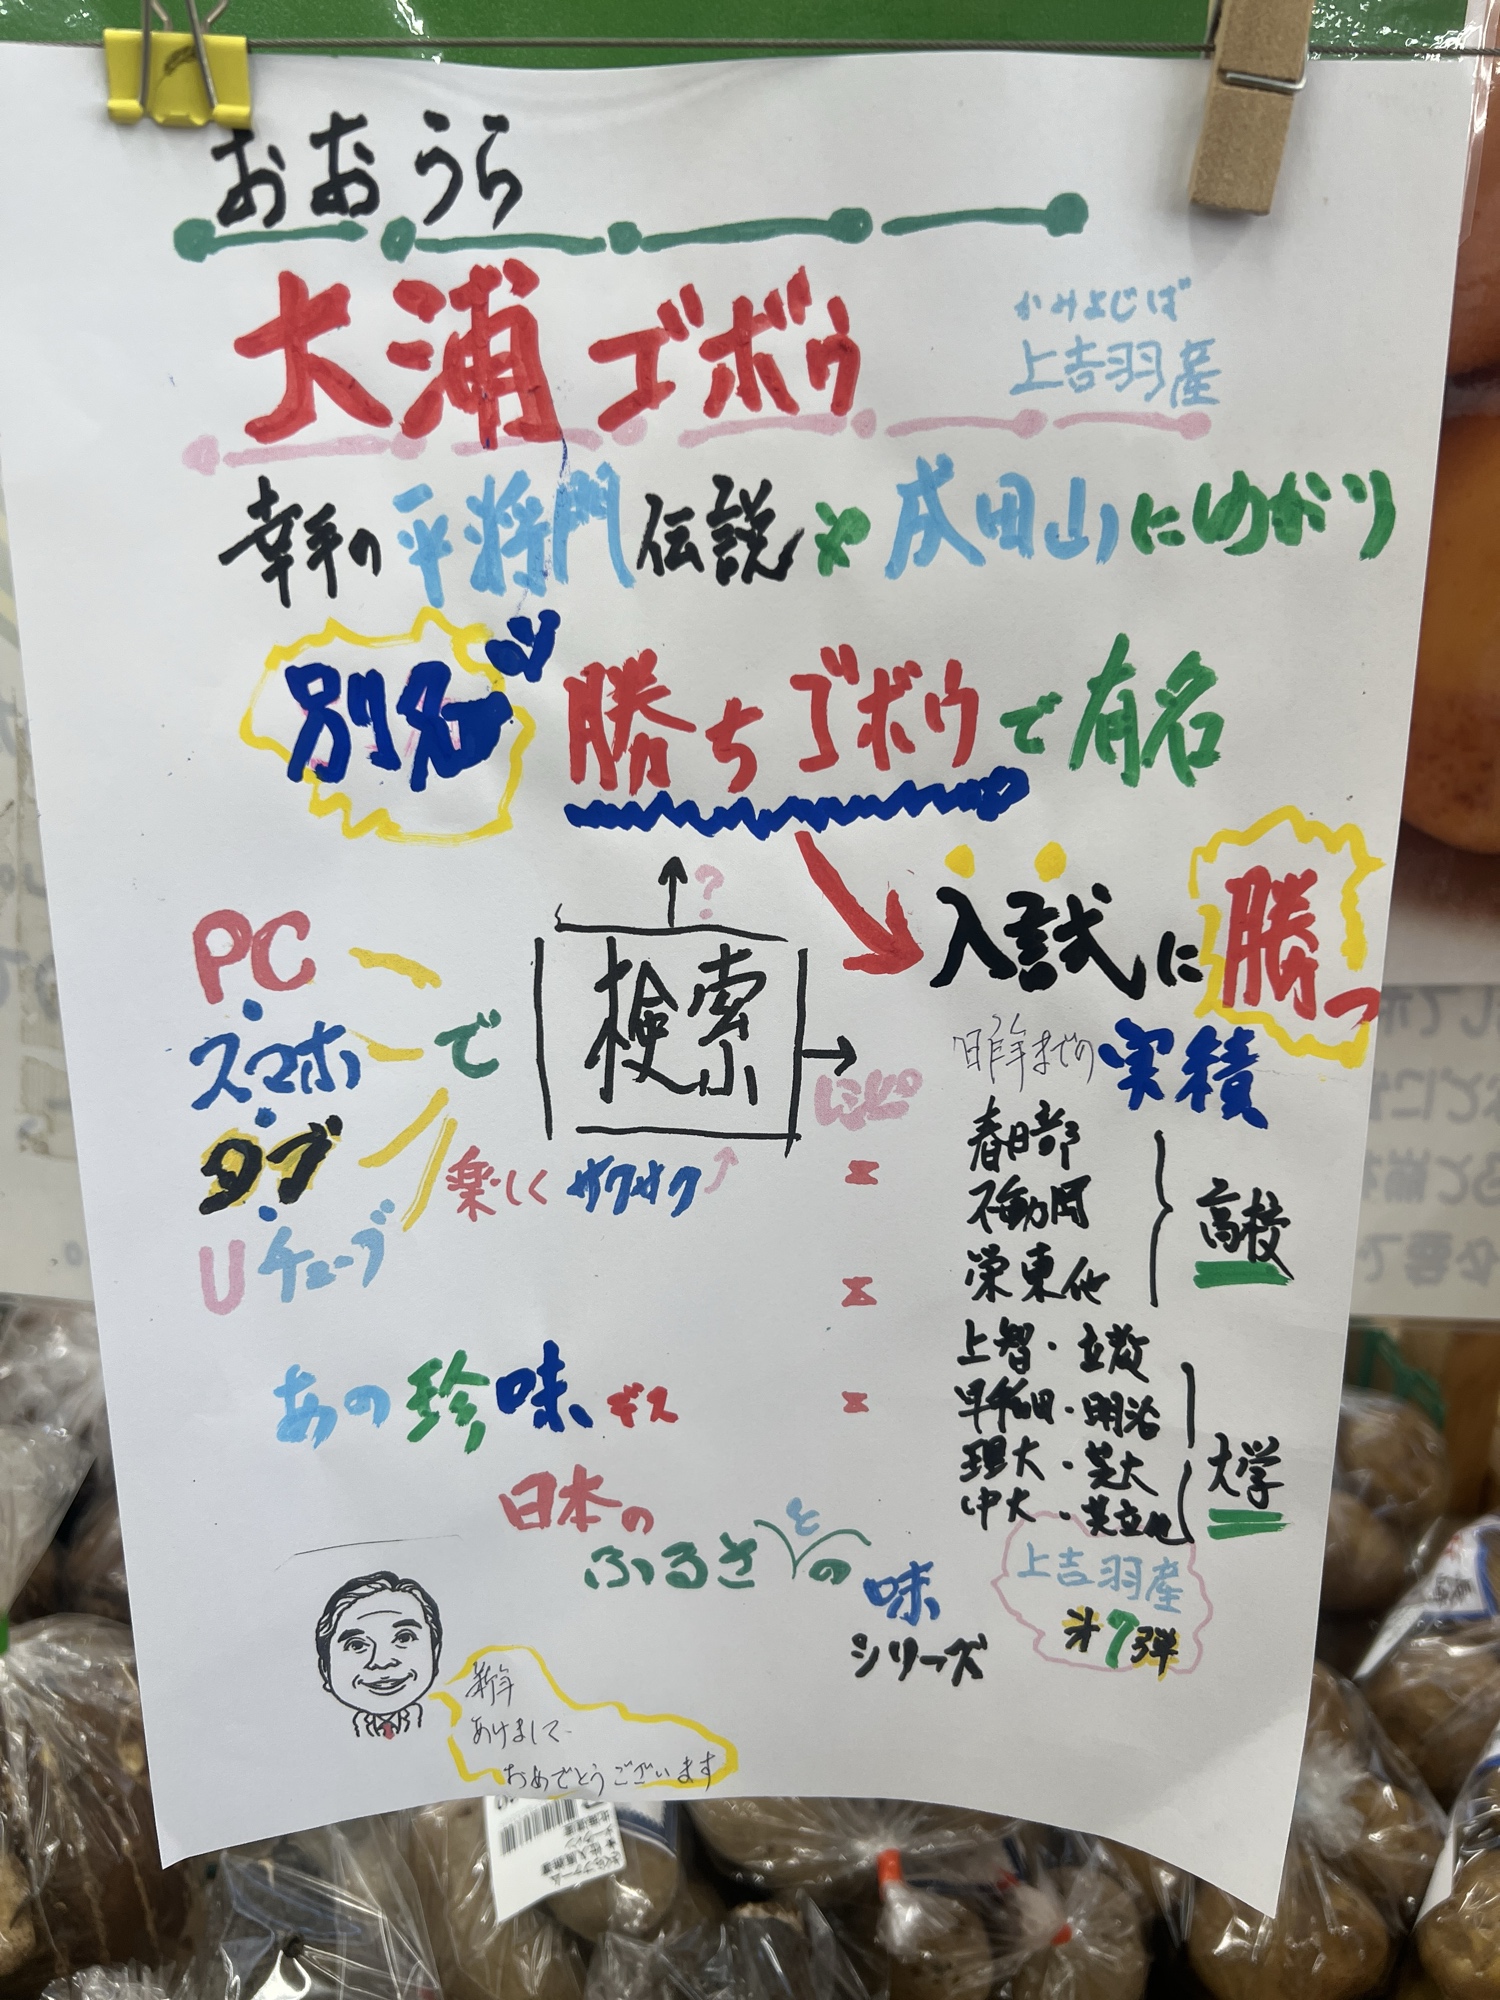 おおうら
大浦ゴボウ
かみよしば
上吉羽産
幸手の平将門伝説や成田山にゆかり
別名
勝ちゴボウで有名
入試に勝つ
PC
スマホ
タブ
Uチューブ
で
検索
?
レシピ
楽しくサクサク
昨年までの実績
春日部
不動岡
栄東他
高校
上智・立教
早稲田・明治
理大・芝大
中大・共立他
大学
あの珍味デス
日本の
ふるさとの
味
シリーズ
上吉羽産
才7弾
新年
あけまして
おめでとうございます